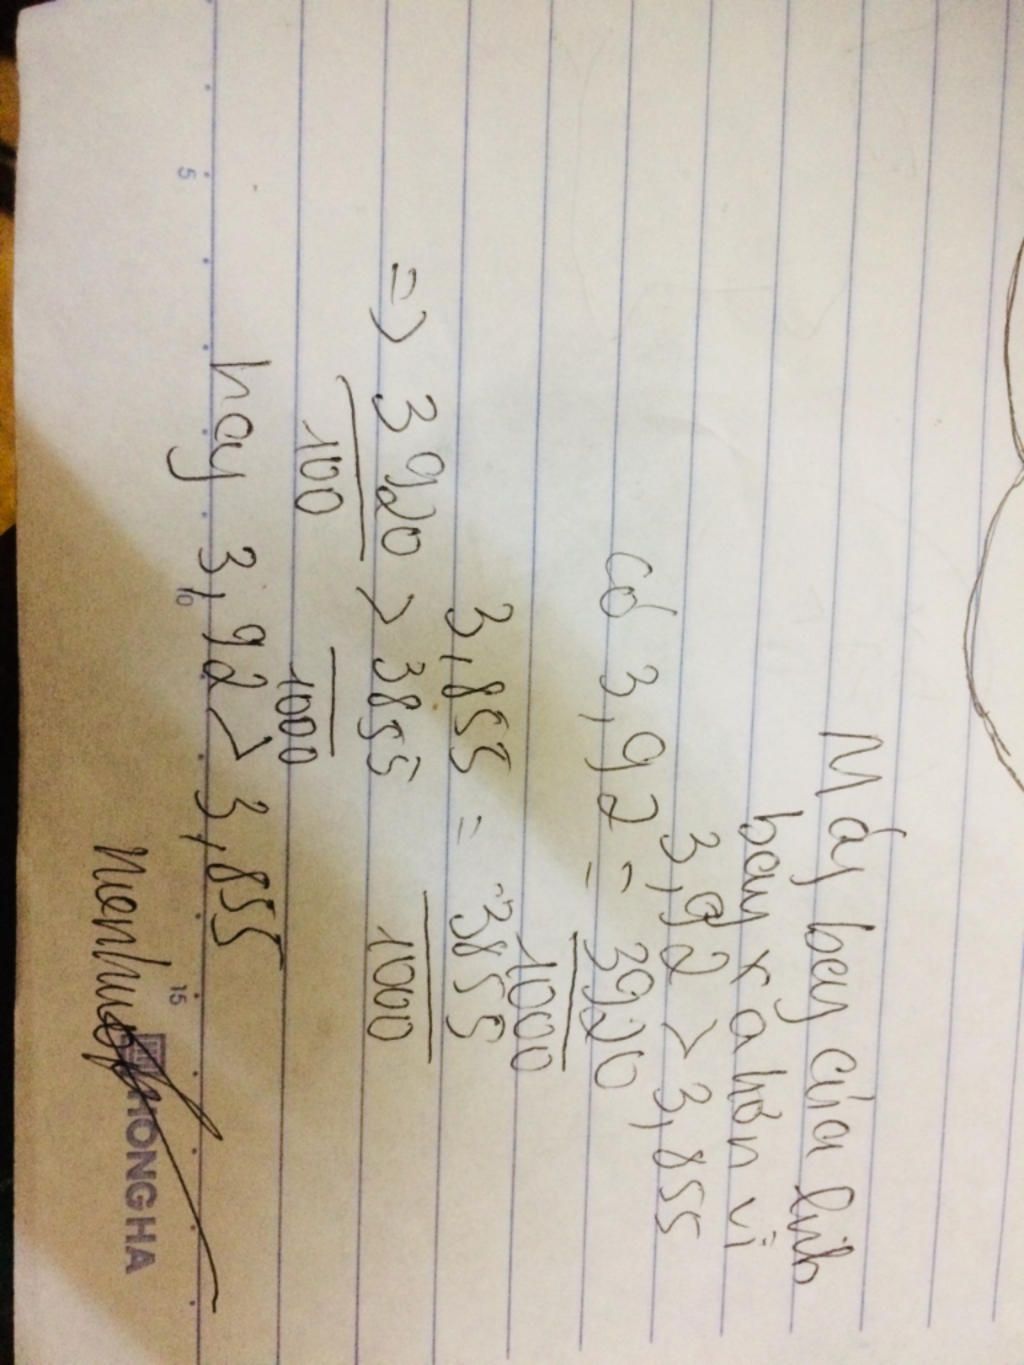 Máy bay của linh
bay xa hơn vì
3,92 > 3,855
có 3,92 = 3920
1000
3,855 = 3855
1000
=> 3920 > 3855
100 1000
hay 3,92 > 3,855
5 10 15
HONG HA